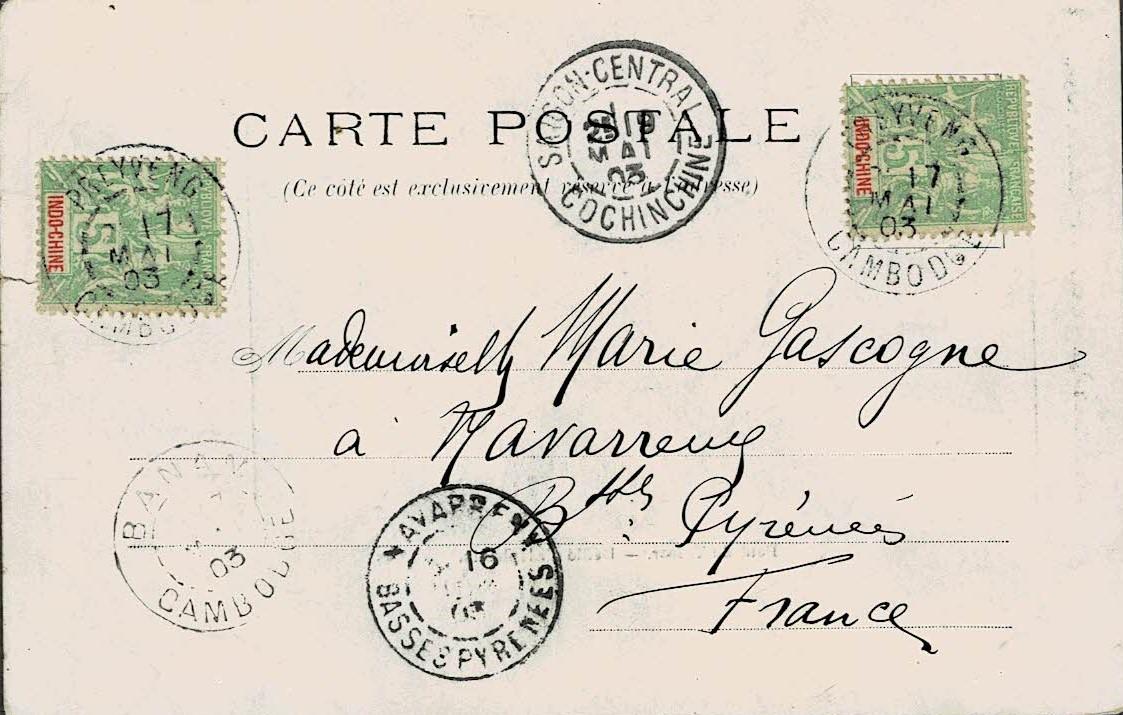 CARTE POSTALE
(Ce côté est exclusivement réservé à l'adresse)
SAIGON-CENTRAL
19
MAI
03
COCHINCHINE
PREYVENG
17
MAI
03
CAMBODGE
INDO-CHINE
5
PREYVENG
17
MAI
03
CAMBODGE
REPUBLIQUE FRANÇAISE
INDO-CHINE
5
Mademoiselle Marie Gascogne
à Navarrenx
Bses Pyrénées
France
BANAM
03
CAMBODGE
NAVARRENX
16
03
BASSES PYRENEES